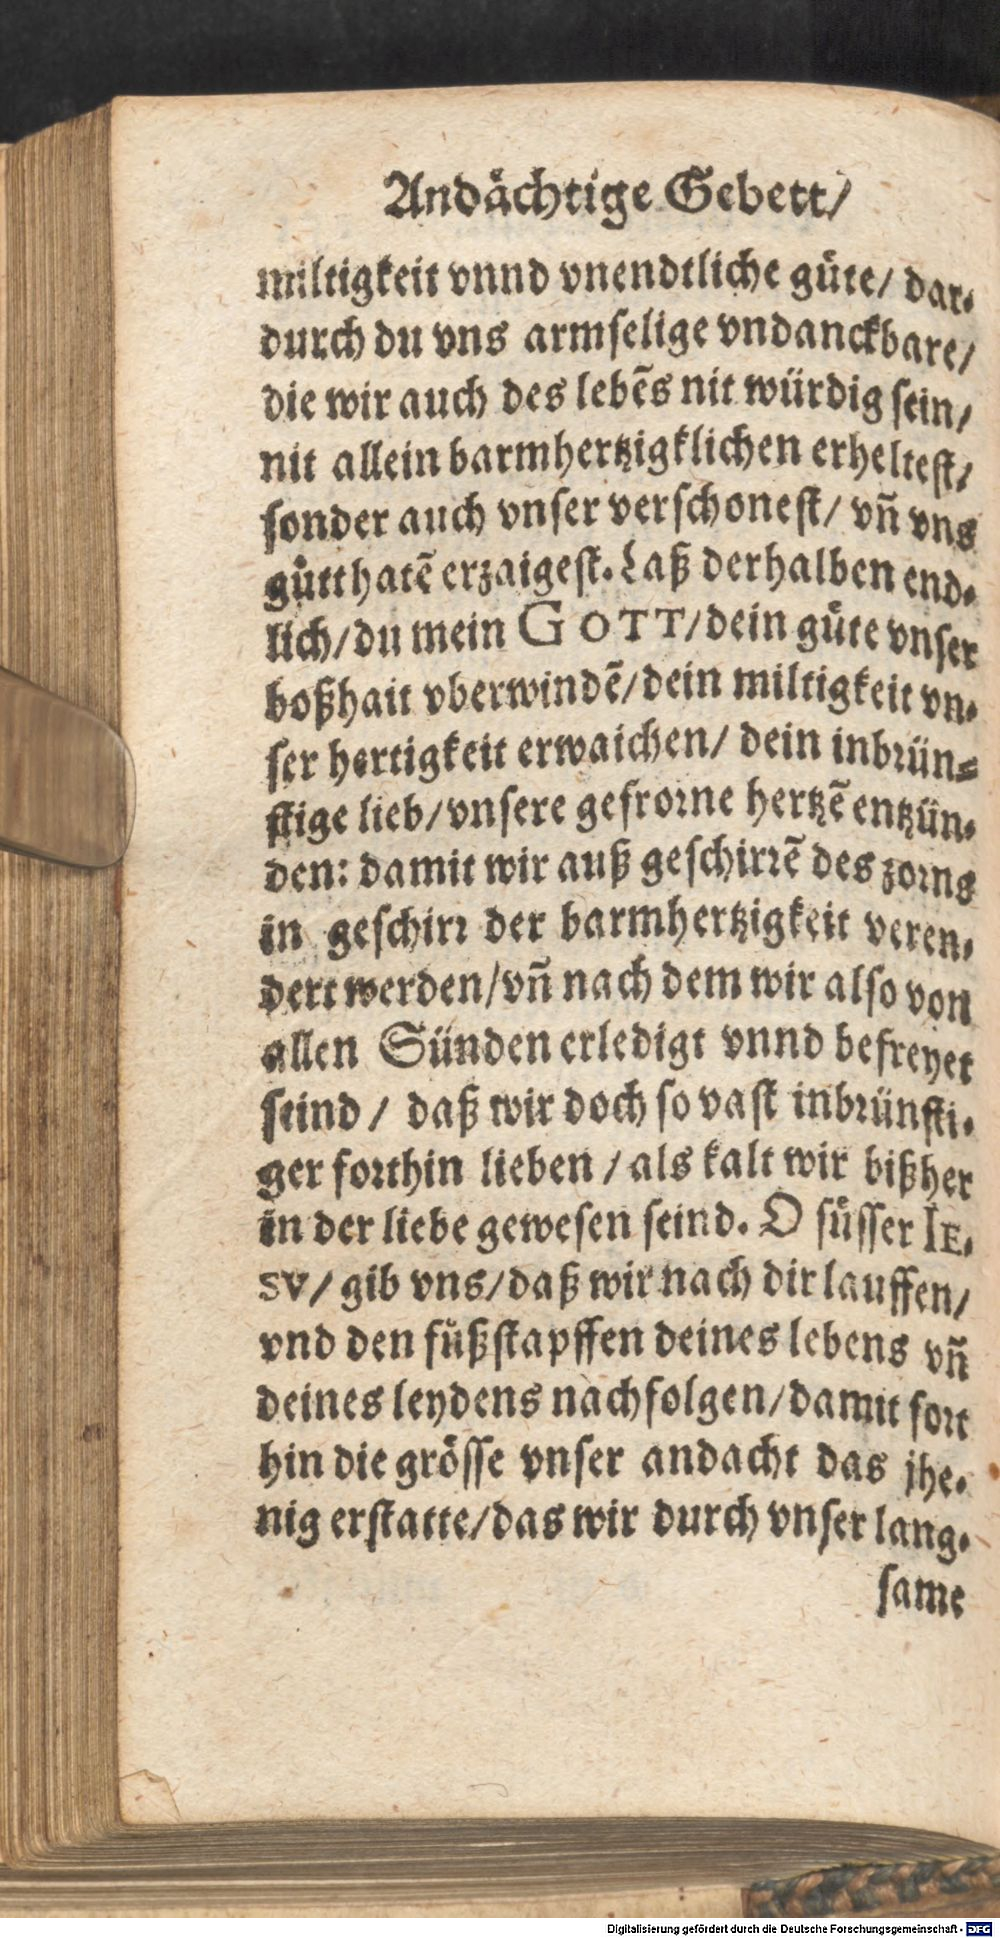 Andächtige Gebett/
miltigkeit vnnd vnendtliche güte/ dar-
durch du vns armselige vndanckbare/
die wir auch des lebēs nit würdig sein/
nit allein barmhertzigklichen erheltest/
sonder auch vnser verschonest/ vñ vns
gůtthatē erzaigest. Laß derhalben end-
lich/ du mein GOTT/ dein güte vnser
boßhait vberwindē/ dein miltigkeit vn-
ser hertigkeit erwaichen/ dein inbrün-
stige lieb/ vnsere gefrorne hertzē entzün-
den: damit wir auß geschirrē des zorns
in geschirr der barmhertzigkeit veren-
dert werden/ vñ nach dem wir also von
allen Sünden erledigt vnnd befreyet
seind/ daß wir doch so vast inbrünsti-
ger forthin lieben/ als kalt wir bißher
in der liebe gewesen seind. O süsser IE-
SV/ gib vns/ daß wir nach dir lauffen/
vnd den fůßstapffen deines lebens vñ
deines leydens nachfolgen/ damit fort
hin die grösse vnser andacht das jhe-
nig erstatte/ das wir durch vnser lang-
same
Digitalisierung gefördert durch die Deutsche Forschungsgemeinschaft - DFG